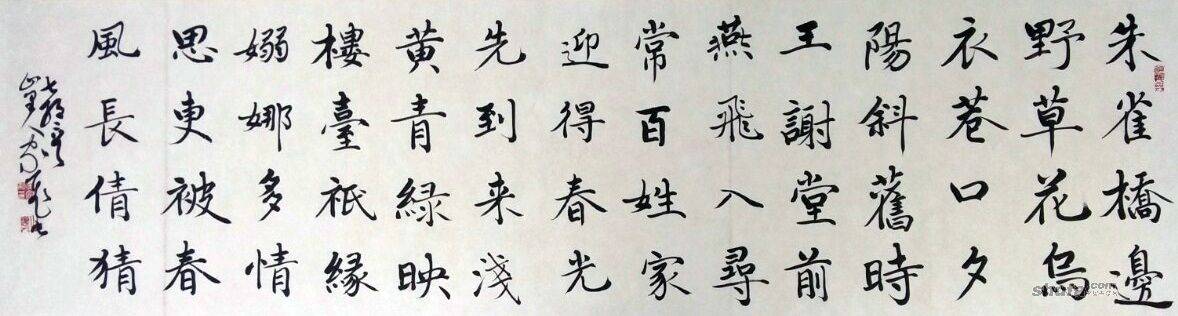 朱雀橋邊
野草花烏
衣巷口夕
陽斜舊時
王謝堂前
燕飛入尋
常百姓家
迎得春光
先到来淺
黄青綠映
樓臺祇緣
嫋娜多情
思更被春
風長倩猜